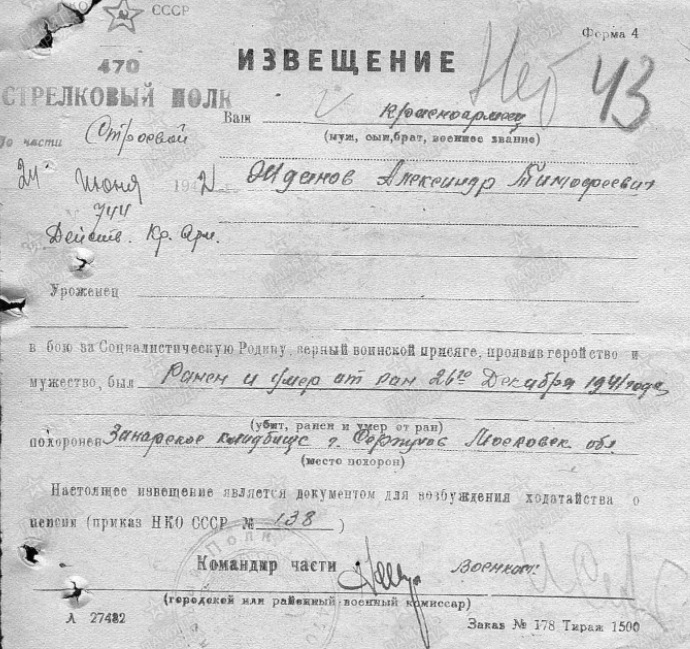 СССР
Форма 4
ИЗВЕЩЕНИЕ
Нет 43
470
СТРЕЛКОВЫЙ ПОЛК
Ваш красноармеец
(муж, сын, брат, военное звание)
По части Строевой
24 Июня 1942
Жданов Александр Тимофеевич
744
Действ. Кр. Арм.
Уроженец
в бою за Социалистическую Родину, верный воинской присяге, проявив геройство и
мужество, был Ранен и умер от ран 26го Декабря 1941 года
(убит, ранен и умер от ран)
похоронен Занарское кладбище г. Серпухов Московск. обл.
(место похорон)
Настоящее извещение является документом для возбуждения ходатайства о
пенсии (приказ НКО СССР № 138)
Командир части Военком:
(городской или районный военный комиссар)
А 27482
Заказ № 178 Тираж 1500